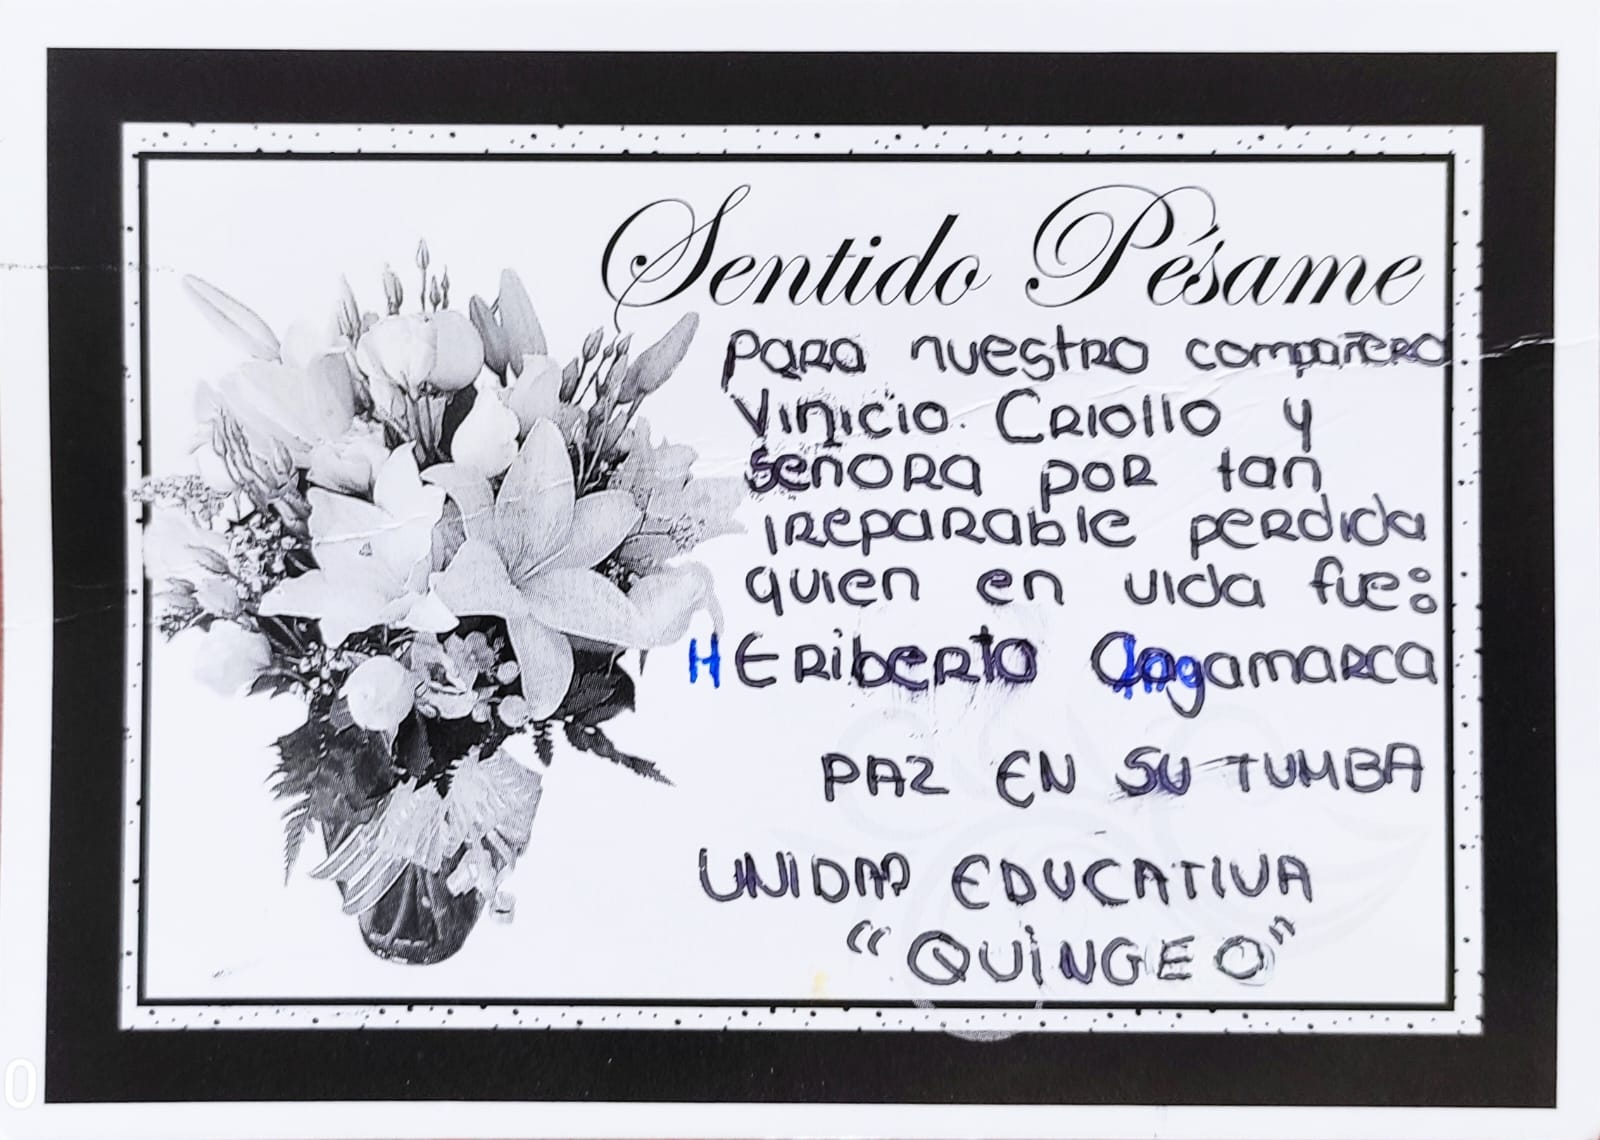 Sentido Pésame
Para nuestro compañero
Vinicio Criollo y
señora por tan
ireparable perdida
quien en vida fue:
HEriberto Angamarca
PAZ EN SU TUMBA
UNIDAD EDUCATIVA
"QUINGEO"
0